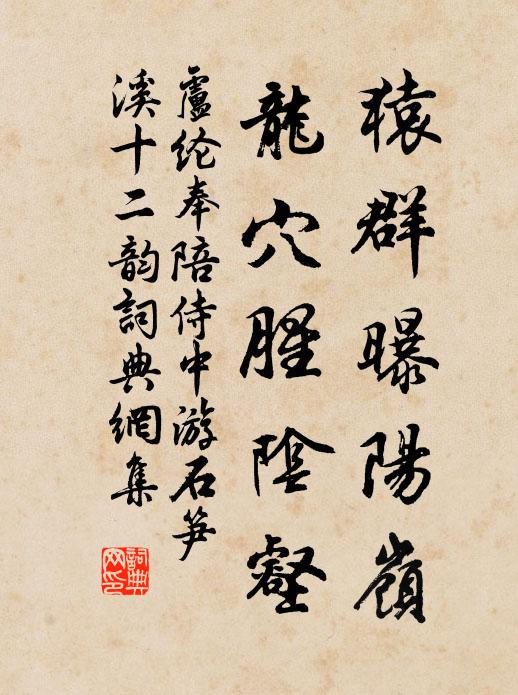 猿群曝陽嶺
龍穴腥陰壑
盧纶奉陪侍中游石笋
溪十二韵詞典網集
詞典网印